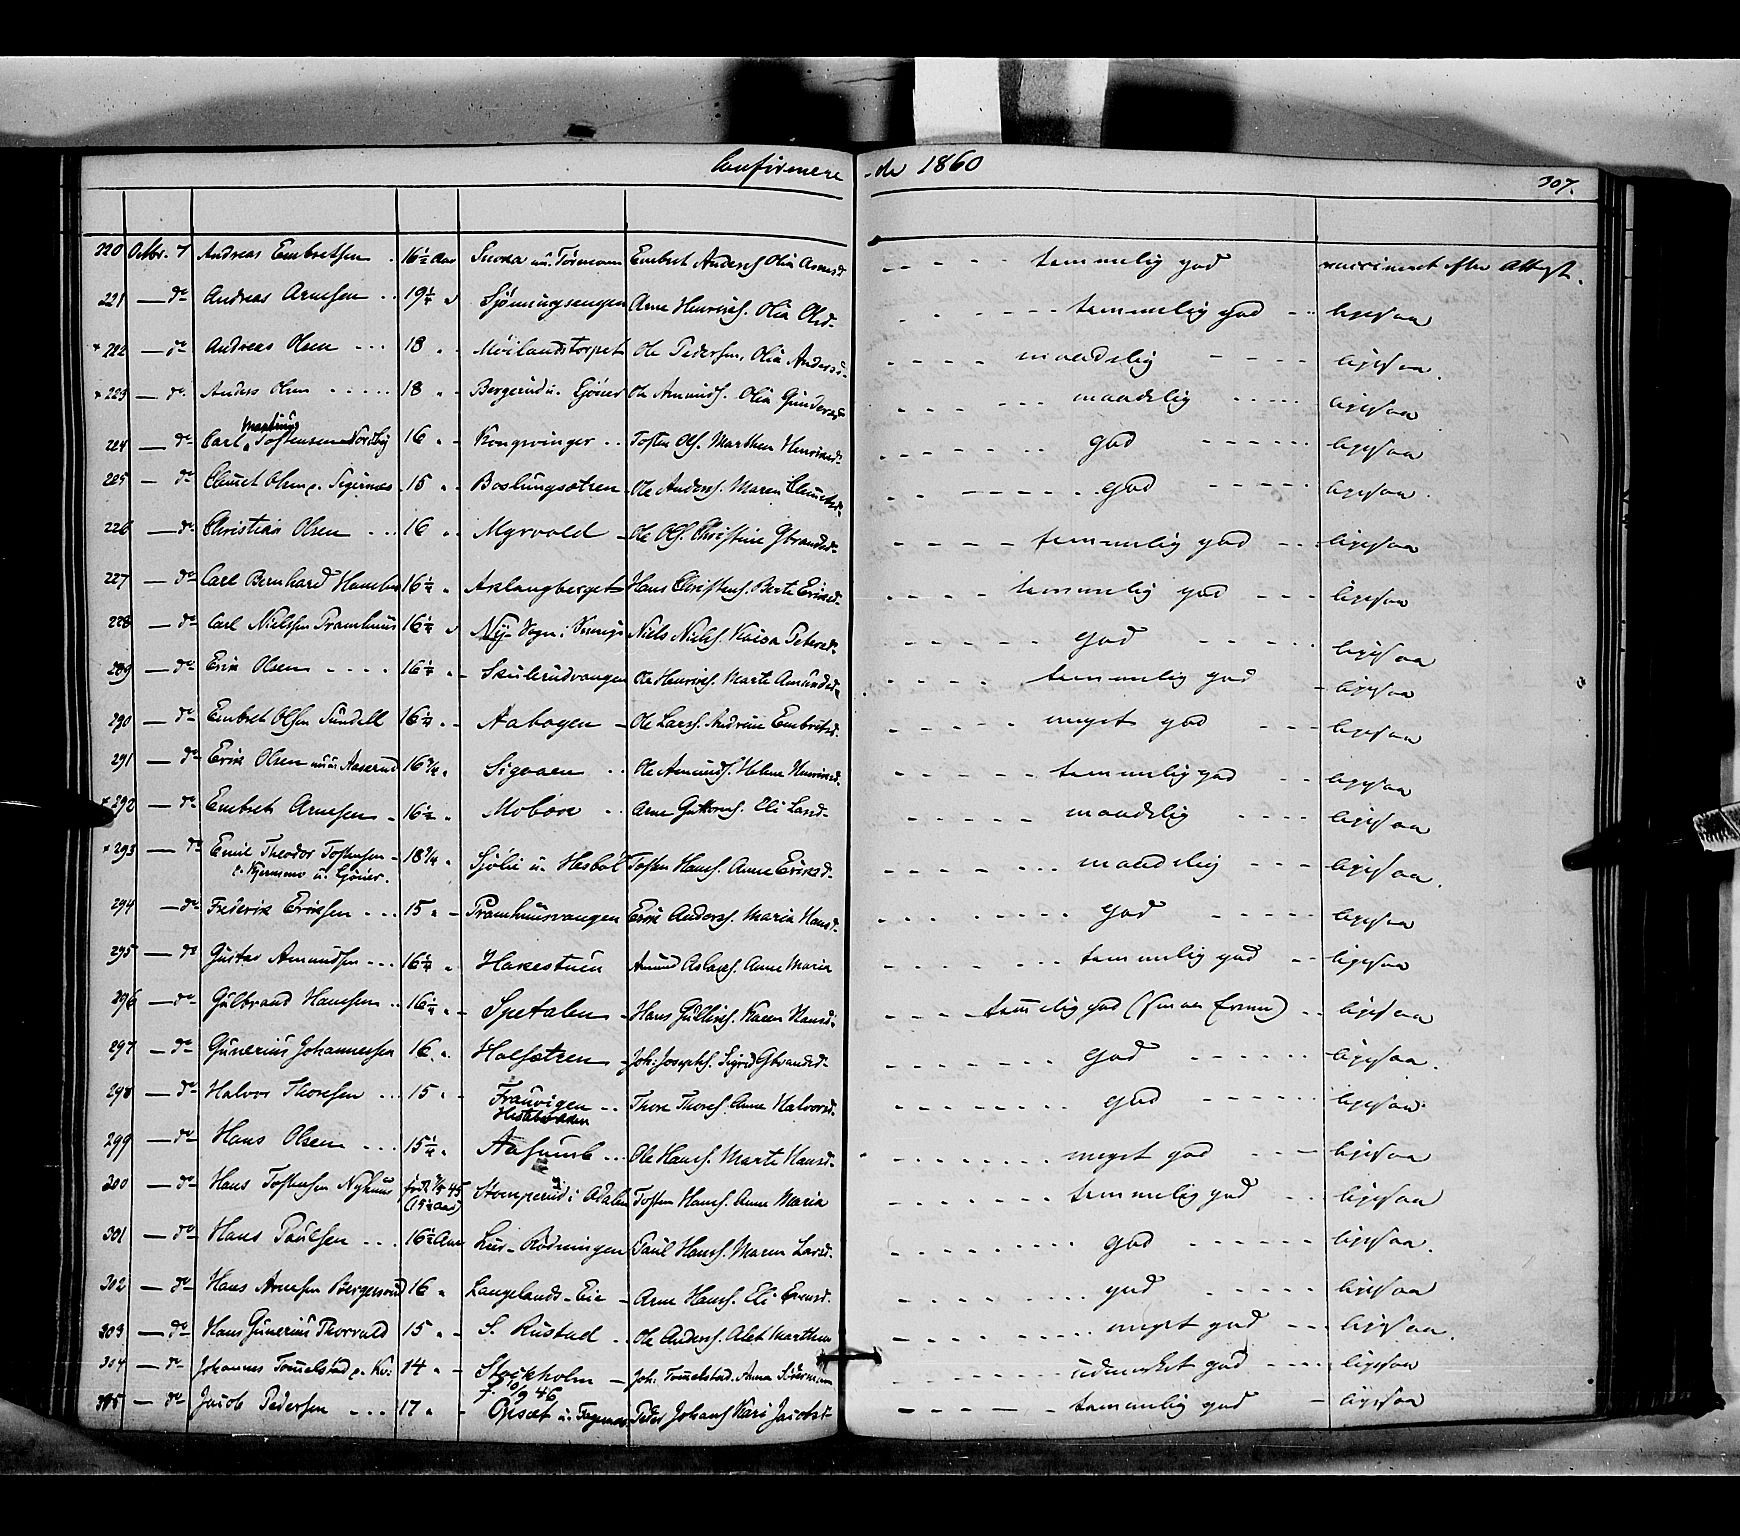 Confirmerede 1860
307.
220 Octbr. 7 Andreas Embretsen 16½ Aar Embret Anders. Olia Arnesd. temmelig god vaccineret efter Attest.
221 — do Andreas Arnesen 19¼ Sjønningsengen Arne Henriks. Olia Olsd. temmelig god ligesaa
222 — do Andreas Olsen 18 Møilandstorpet Ole Pedersen, Olia Andersd. maadelig ligesaa.
223 — do Anders Olsen 18 Bergerud u. Sjøner Ole Amunds. Olia Gundersd. maadelig ligesaa
224 — do Carl Martinus Tostensen Nordby 16 Kongsvinger Tosten Ols. Marthea Henriksd. god ligesaa
225 — do Clemet Olsen p. Sigernæs 15 Boslungsætren Ole Anders. Maren Clemetsd. god ligesaa.
226 — do Christian Olsen 16 Myrvold Ole Ols. Christine Gbrandsd. temmelig god ligesaa
227 — do Carl Bernhard 16½ Aslangberget Hans Christens. Berte Eriksd. temmelig god ligesaa
228 — do Carl Nielsen Pramhuus 16¼ Ny-Sogn i Sverige Niels Niels. Kaisa Petersd. god ligesaa
289 — do Erik Olsen 16¼ Skulerudvangen Ole Henriks. Marte Amundsd. temmelig god ligesaa
290 — do Embret Olsen Sundell 16¼ Aabogen Ole Lars. Andrine Embretsd. meget god ligesaa
291 — do Erik Olsen Aaserud 16¾ Sigvaen Ole Amunds. Helene Henriksd. temmelig god ligesaa
292 — do Embret Arnesen 16½ Mobøre Arne Guttorms. Eli Larsd. maadelig ligesaa
293 — do Emil Theodor Tostensen 18¾ Sjølie u. Hesbøl Tosten Hans. Anne Eriksd. maadelig ligesaa.
u. Sjøner.
294 — do Frederik Eriksen 15 Pramhuusvangen Erik Anders. Maria Hansd. god ligesaa
295 — do Gustav Amundsen 16¼ Hakestuen Amund Aslaks. Anne Maria temmelig god ligesaa
296 — do Gulbrand Hansen 16¼ Spetalen Hans Gulliks. Karen Hansd. temmelig god (smaa Evner) ligesaa
297 — do Gunerius Johannessen 16 Holsætren Joh: Josephs. Sigrid Gbrandsd. god ligesaa.
298 — do Halvor Thoresen 15 Frauvigen Thore Thores. Anne Halvorsd. god ligesaa
299 — do Hans Olsen 15¼ Aasumb Ole Hans. Marte Hansd. meget god ligesaa
300 — do Hans Tostensen Nyhuus Stomperud i Aadalen Tosten Hans. Anne Maria temmelig god ligesaa
301 — do Hans Paulsen 16½ Aar Lier-Rødningen Paul Hans. Maren Larsd. god ligesaa.
302 — do Hans Arnesen Bergerud 16 Langelands-Eie Arne Hans. Eli Evensd. god ligesaa
303 — do Hans Gunerius Thorvald 15 S. Rustad Ole Anders. Alet Marthea meget god ligesaa.
304 — do Johannes Tommelstad p. Kv: 14 Stockholm Joh: Tommelstad. Anna Södermann udmærket god ligesaa
f 10/9 46
305 — do Jacob Pedersen 17 Peder Johans Kari Jacobsd. temmelig god ligesaa